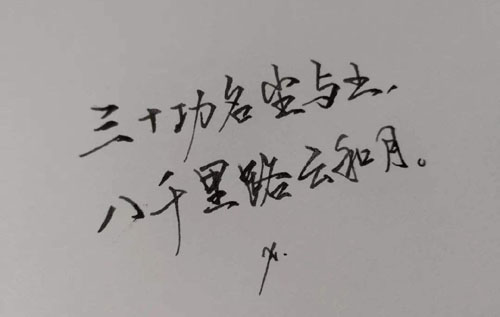 三十功名尘与土，
八千里路云和月。